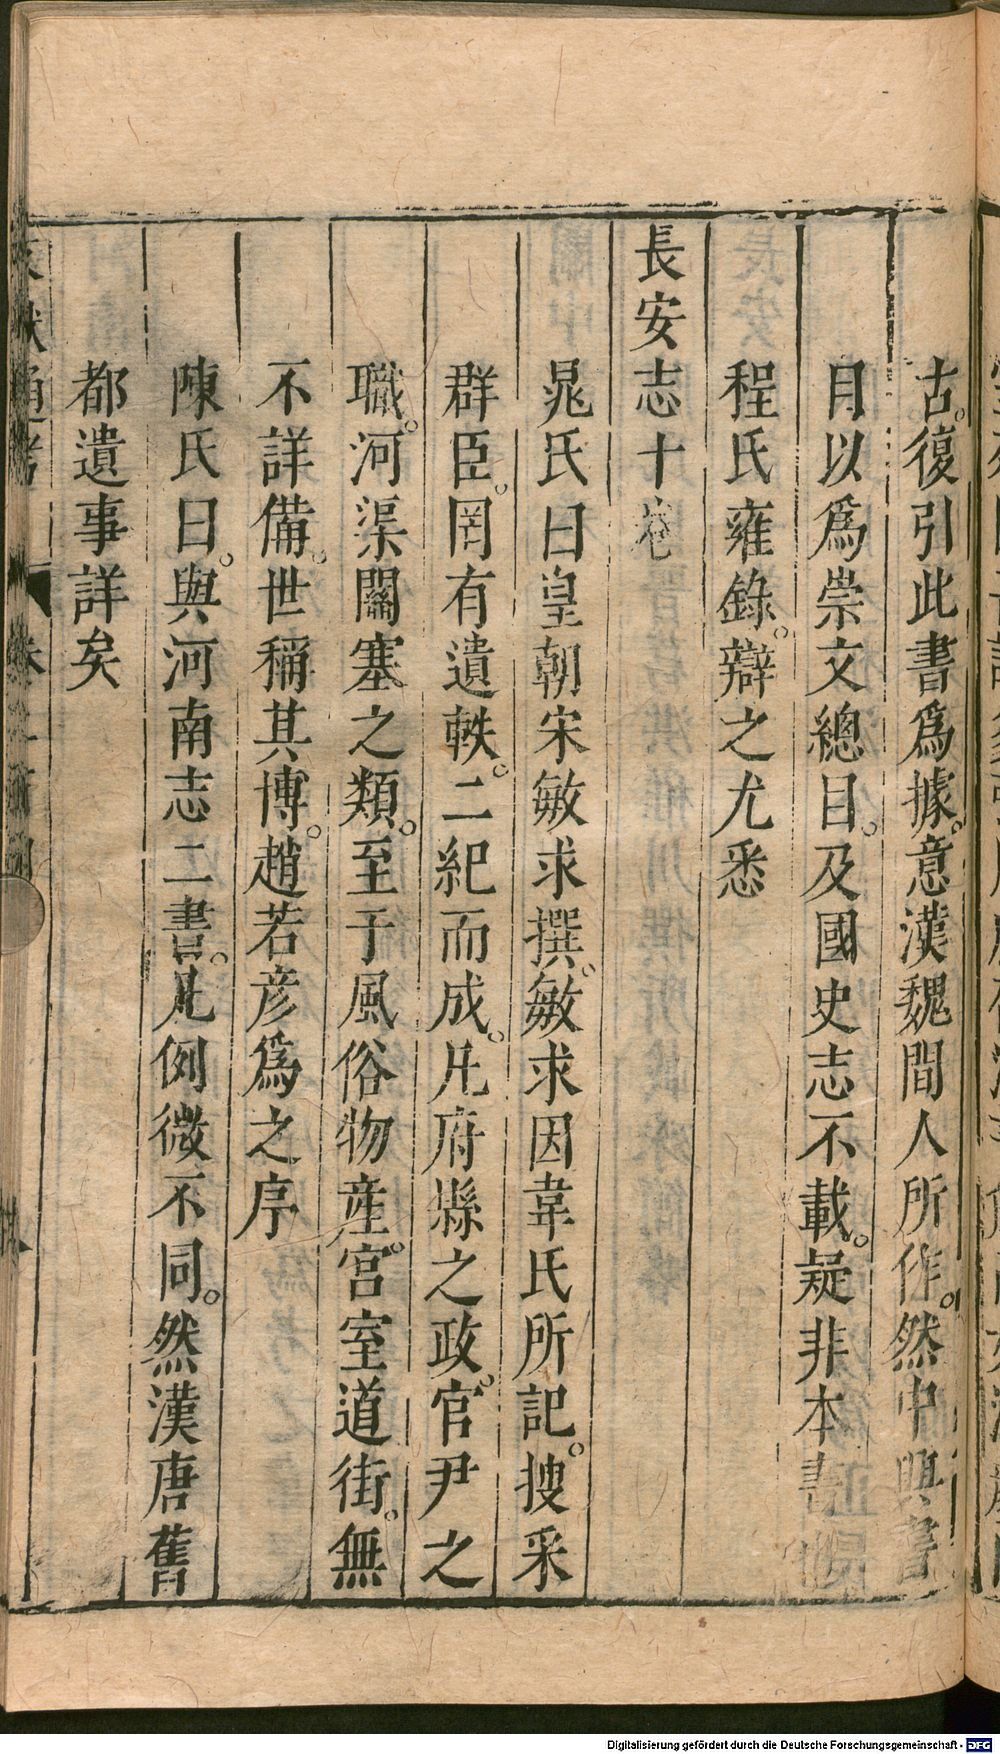 古。復引此書爲據。意漢魏間人所作。然中興書
目以爲崇文總目。及國史志不載。疑非本書
程氏雍錄。辯之尤悉
長安志十卷
晁氏曰皇朝宋敏求撰。敏求因韋氏所記。搜采
群臣。罔有遺軼。二紀而成。凡府縣之政。官尹之
職。河渠關塞之類。至于風俗物産。宮室道街。無
不詳備。世稱其博。趙若彦爲之序
陳氏曰。與河南志二書。凡例微不同。然漢唐舊
都遺事詳矣
Digitalisierung gefördert durch die Deutsche Forschungsgemeinschaft - DFG